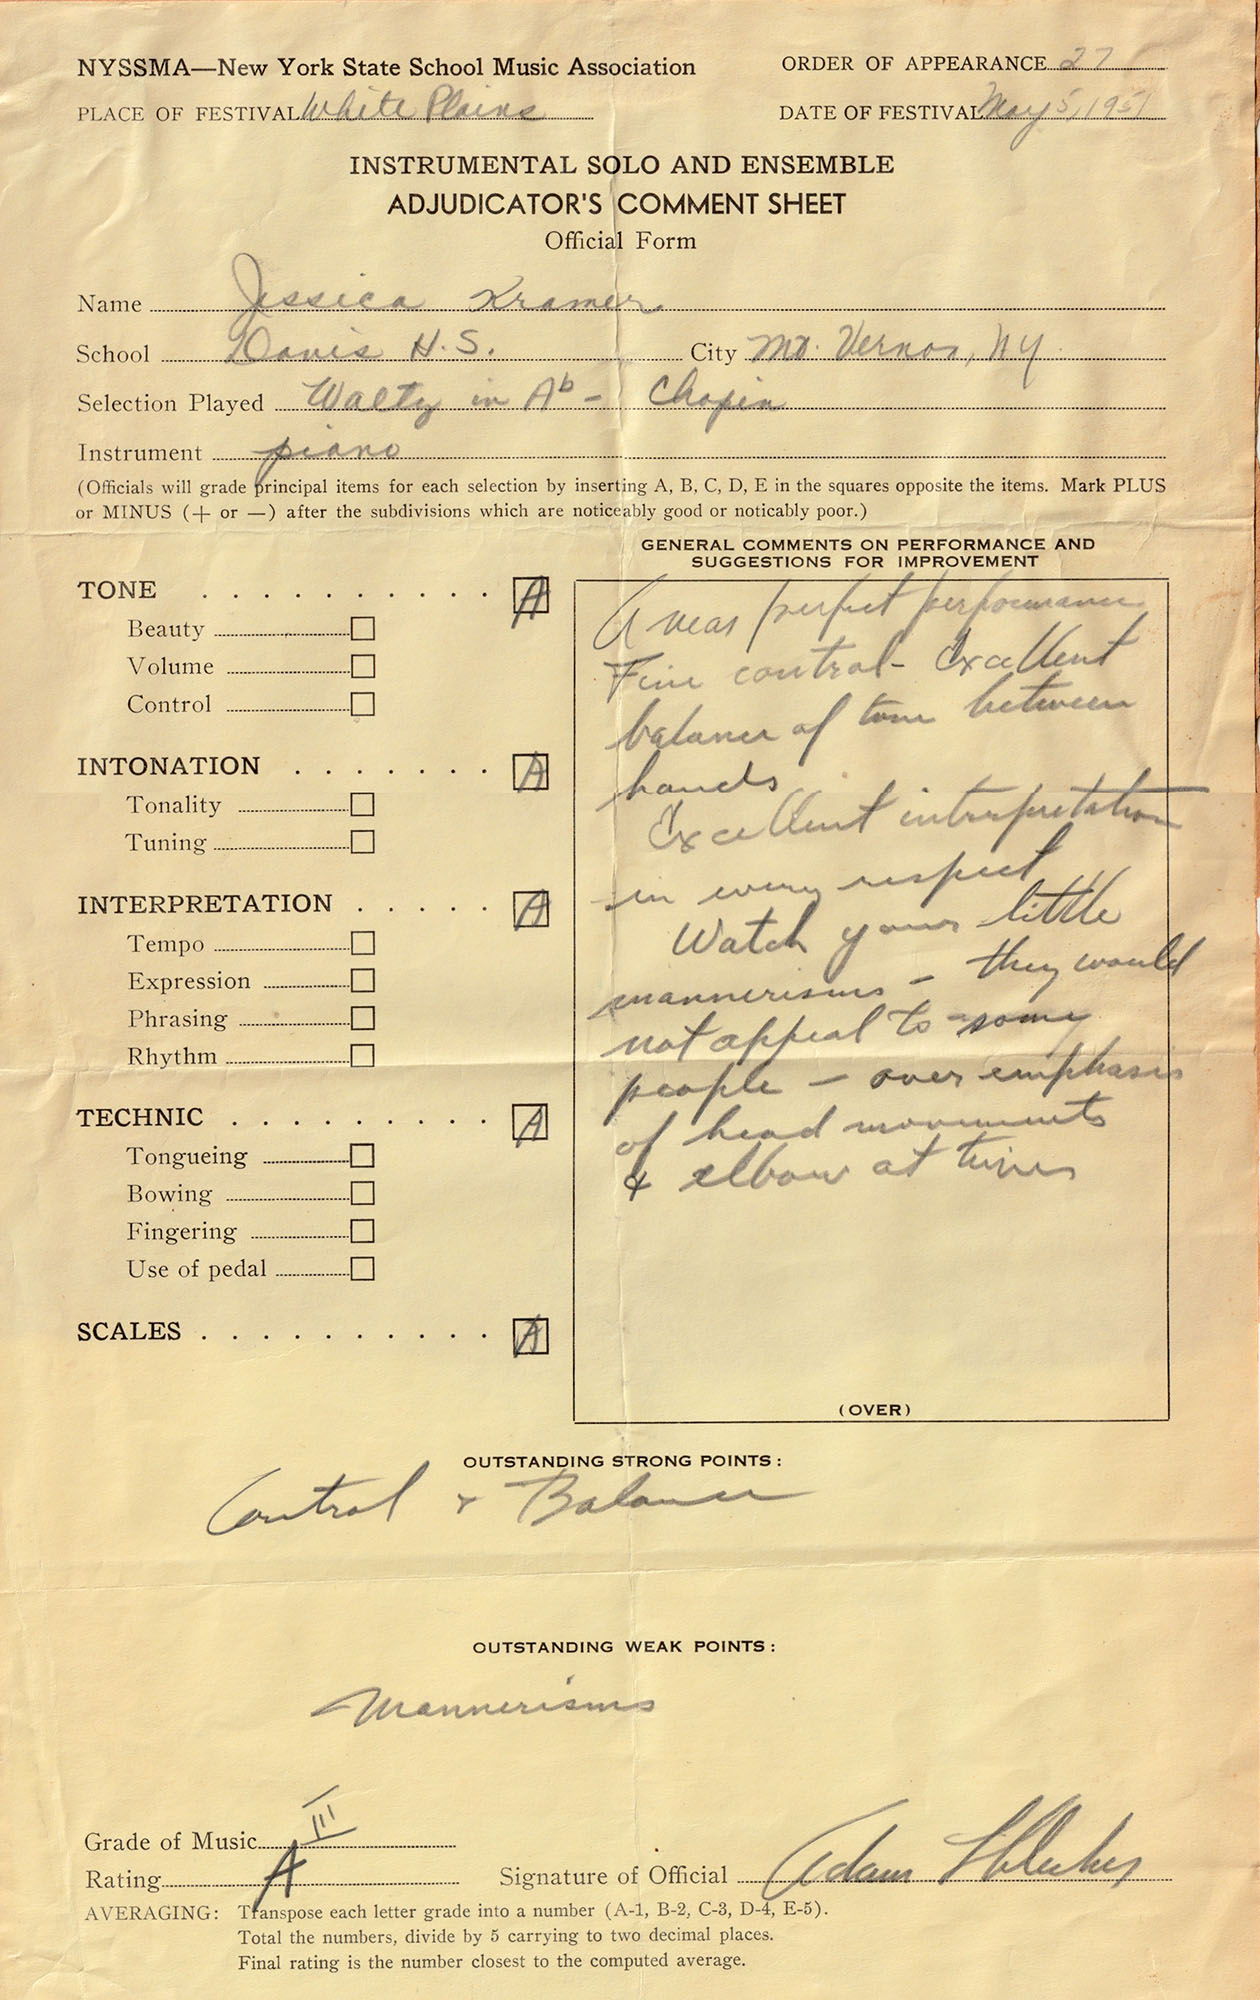 NYSSMA—New York State School Music Association
ORDER OF APPEARANCE 27
PLACE OF FESTIVAL White Plains
DATE OF FESTIVAL May 5, 1951
INSTRUMENTAL SOLO AND ENSEMBLE
ADJUDICATOR'S COMMENT SHEET
Official Form
Name Jessica Kramer
School Davis H.S. City Mt. Vernon, NY
Selection Played Waltz in Ab - Chopin
Instrument piano
(Officials will grade principal items for each selection by inserting A, B, C, D, E in the squares opposite the items. Mark PLUS
or MINUS (+ or —) after the subdivisions which are noticeably good or noticably poor.)
GENERAL COMMENTS ON PERFORMANCE AND
SUGGESTIONS FOR IMPROVEMENT
TONE A
Beauty
Volume
Control
INTONATION A
Tonality
Tuning
INTERPRETATION A
Tempo
Expression
Phrasing
Rhythm
TECHNIC A
Tongueing
Bowing
Fingering
Use of pedal
SCALES A
A near perfect performance
Fine control - Excellent
balance of tone between
hands
Excellent interpretation
in every respect
Watch your little
mannerisms - they would
not appeal to some
people - over emphasis
of head movements
& elbow at times
(OVER)
OUTSTANDING STRONG POINTS:
Control & Balance
OUTSTANDING WEAK POINTS:
Mannerisms
Grade of Music III
Rating A
Signature of Official Adam
AVERAGING: Transpose each letter grade into a number (A-1, B-2, C-3, D-4, E-5).
Total the numbers, divide by 5 carrying to two decimal places.
Final rating is the number closest to the computed average.